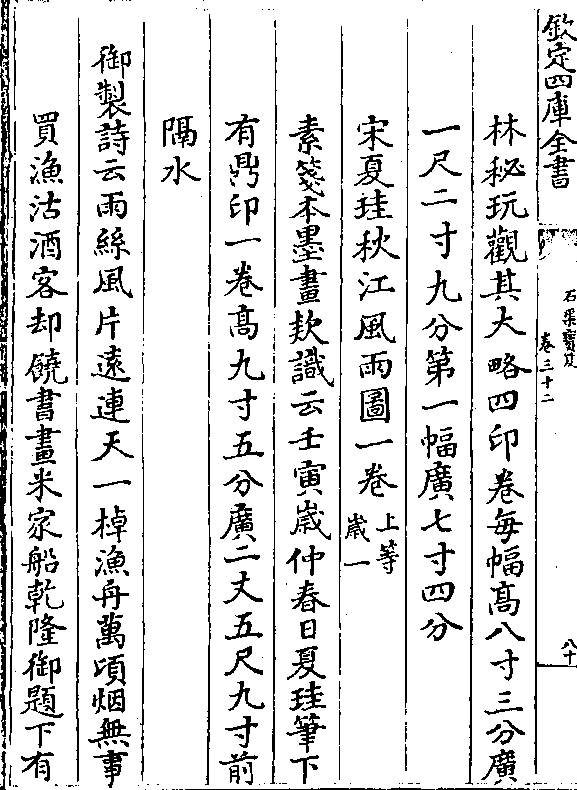 欽定四庫全書
石渠寶笈
卷三十二
八十
林秘玩觀其大略四印卷每幅髙八寸三分廣
一尺二寸九分第一幅廣七寸四分
宋夏珪秋江風雨圖一卷
上等
歲一
素箋本墨畫欵識云壬寅歲仲春日夏珪筆下
有鼎印一卷髙九寸五分廣二丈五尺九寸前
隔水
御製詩云雨絲風片遠連天一棹漁舟萬頃烟無事
買漁沽酒客却饒書畫米家船乾隆御題下有